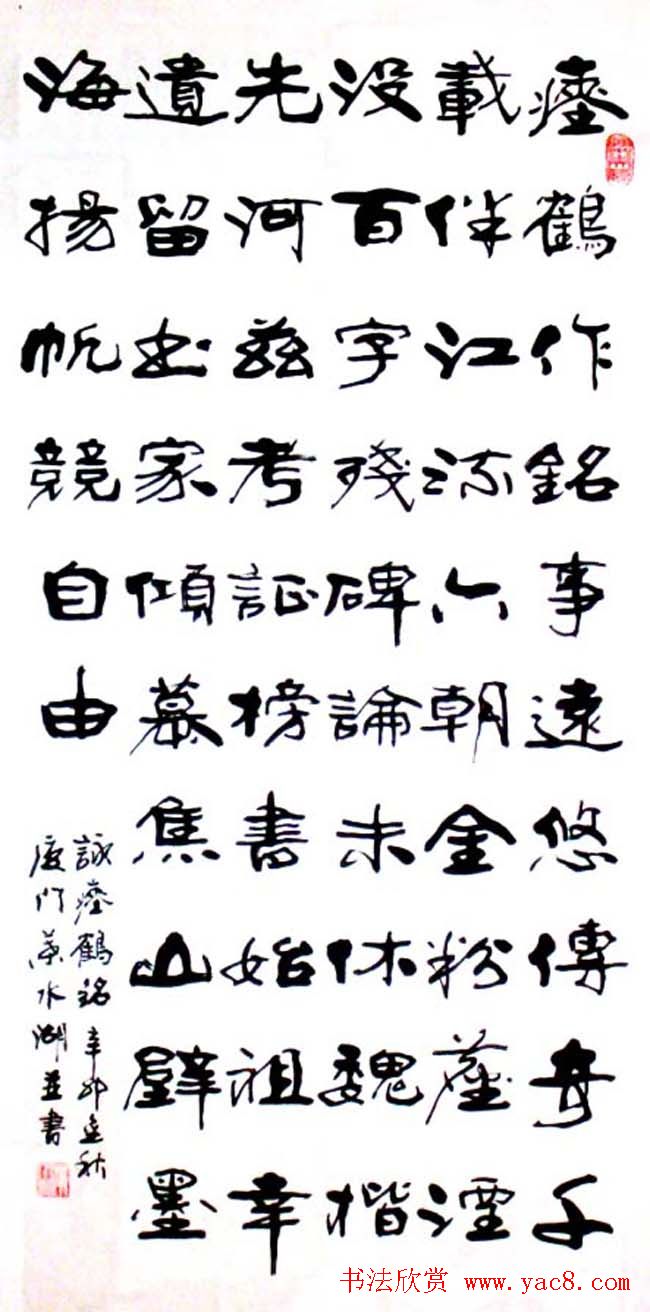 瘞鶴作銘事遠悠傳奇千
載伴江流六朝金粉塵湮
没百字殘碑論未休魏楷
先河茲考証榜書始祖幸
遺留书家傾慕焦山壁墨
海揚帆競自由
詠瘞鶴銘 辛卯秋
厦门葉水湖並書
书法欣赏 www.yac8.com